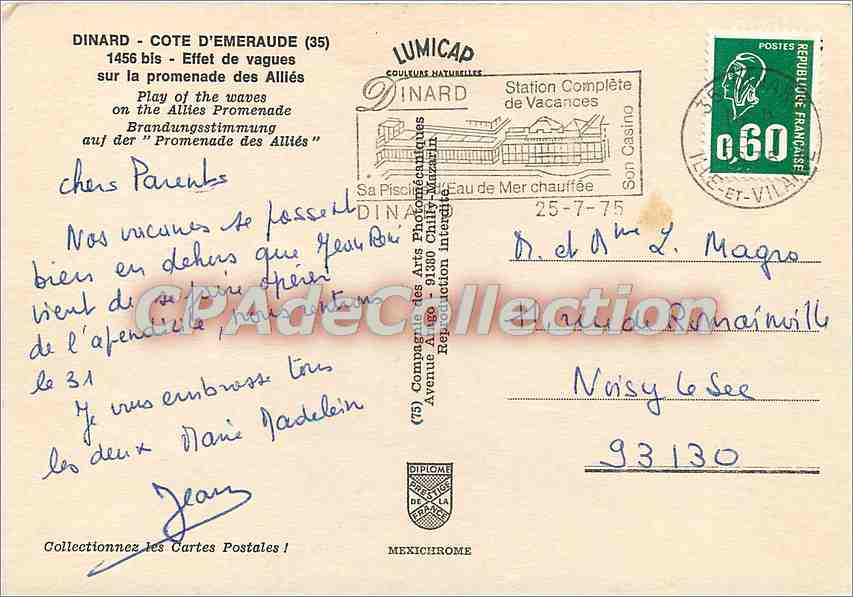 DINARD - COTE D'EMERAUDE (35)
1456 bis - Effet de vagues
sur la promenade des Alliés
Play of the waves
on the Allies Promenade
Brandungsstimmung
auf der "Promenade des Alliés"
LUMICAP
COULEURS NATURELLES
DINARD
Station Complète
de Vacances
Son Casino
Sa Piscine d'Eau de Mer chauffée
DINARD 25-7-75
POSTES
REPUBLIQUE FRANÇAISE
0,60
ILLE-ET-VILAINE
chers Parents
Nos vacances se passent
bien en dehors que Jean René
vient de se faire opérer
de l'apendicite, nous rentrons
le 31
Je vous embrasse tous
les deux Marie Madelein
Jean
Collectionnez les Cartes Postales !
(75) Compagnie des Arts Photomécaniques
Avenue Arago - 91380 Chilly-Mazarin
Reproduction Interdite
DIPLOME
PRESTIGE
DE LA
FRANCE
MEXICHROME
M. et Mme L. Magro
rue de Romainville
Noisy le See
93130
CPAdeCollection